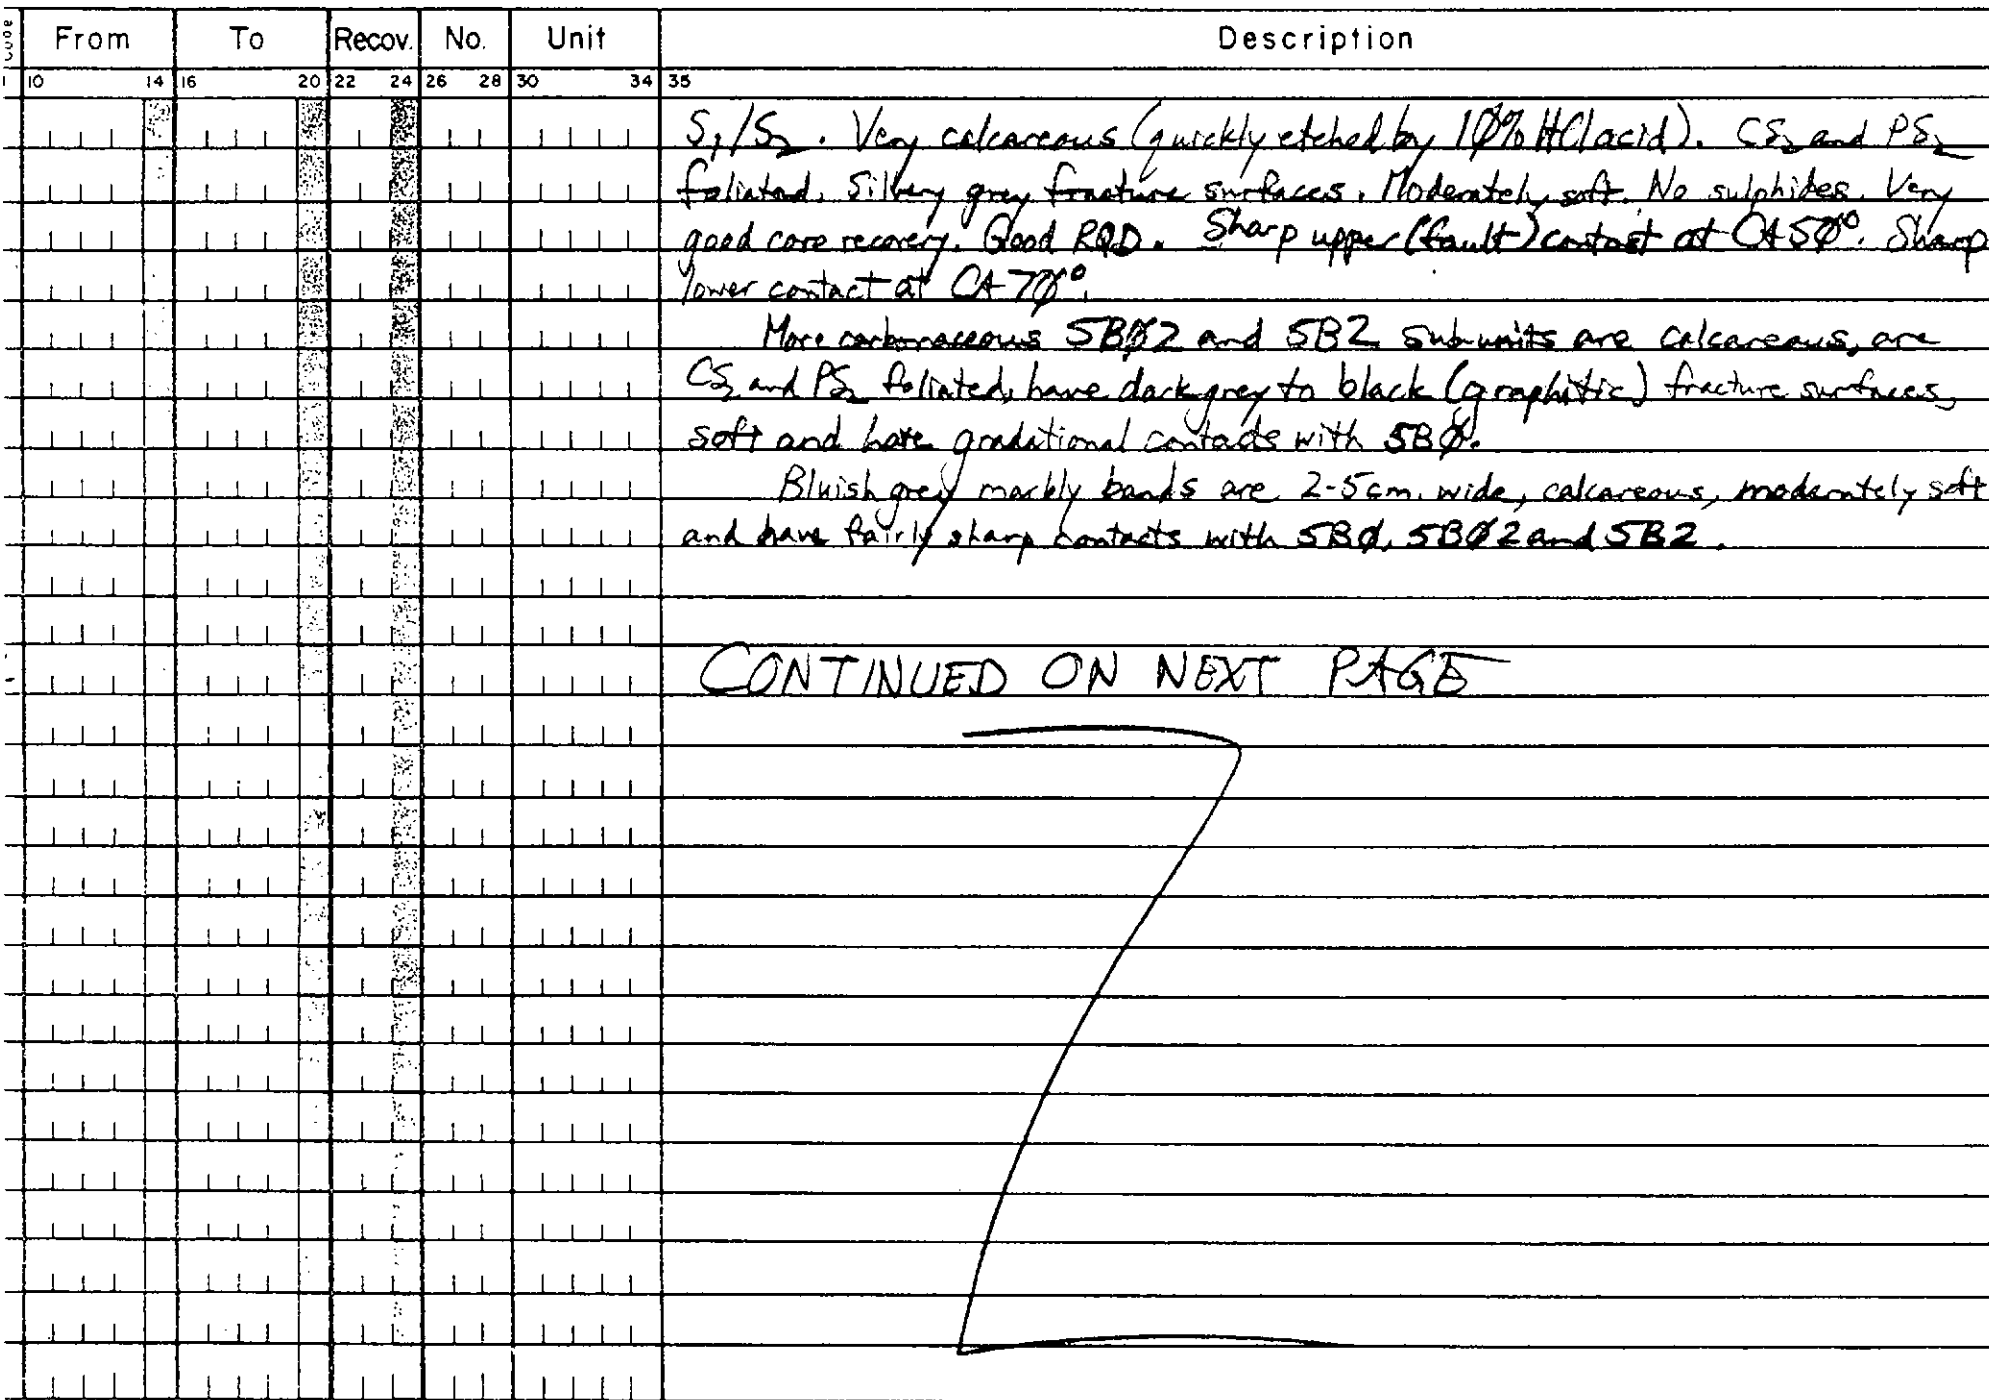 Code From To Recov. No. Unit Description
1 10 14 16 20 22 24 26 28 30 34 35
S₁/S₂. Very calcareous (quickly etched by 1Ø% HCl acid). CS₂ and PS₂
foliated. Silvery grey fracture surfaces. Moderately soft. No sulphides. Very
good core recovery. Good RQD. Sharp upper (fault) contact at CA 5Ø°. Sharp
lower contact at CA 7Ø°.
More carbonaceous 5BØ2 and 5B2 subunits are calcareous, are
CS₂ and PS₂ foliated, have dark grey to black (graphitic) fracture surfaces,
soft and have gradational contacts with 5BØ.
Bluish grey bands are 2-5cm. wide, calcareous, moderately soft
and have fairly sharp contacts with 5BØ, 5BØ2 and 5B2.
CONTINUED ON NEXT PAGE